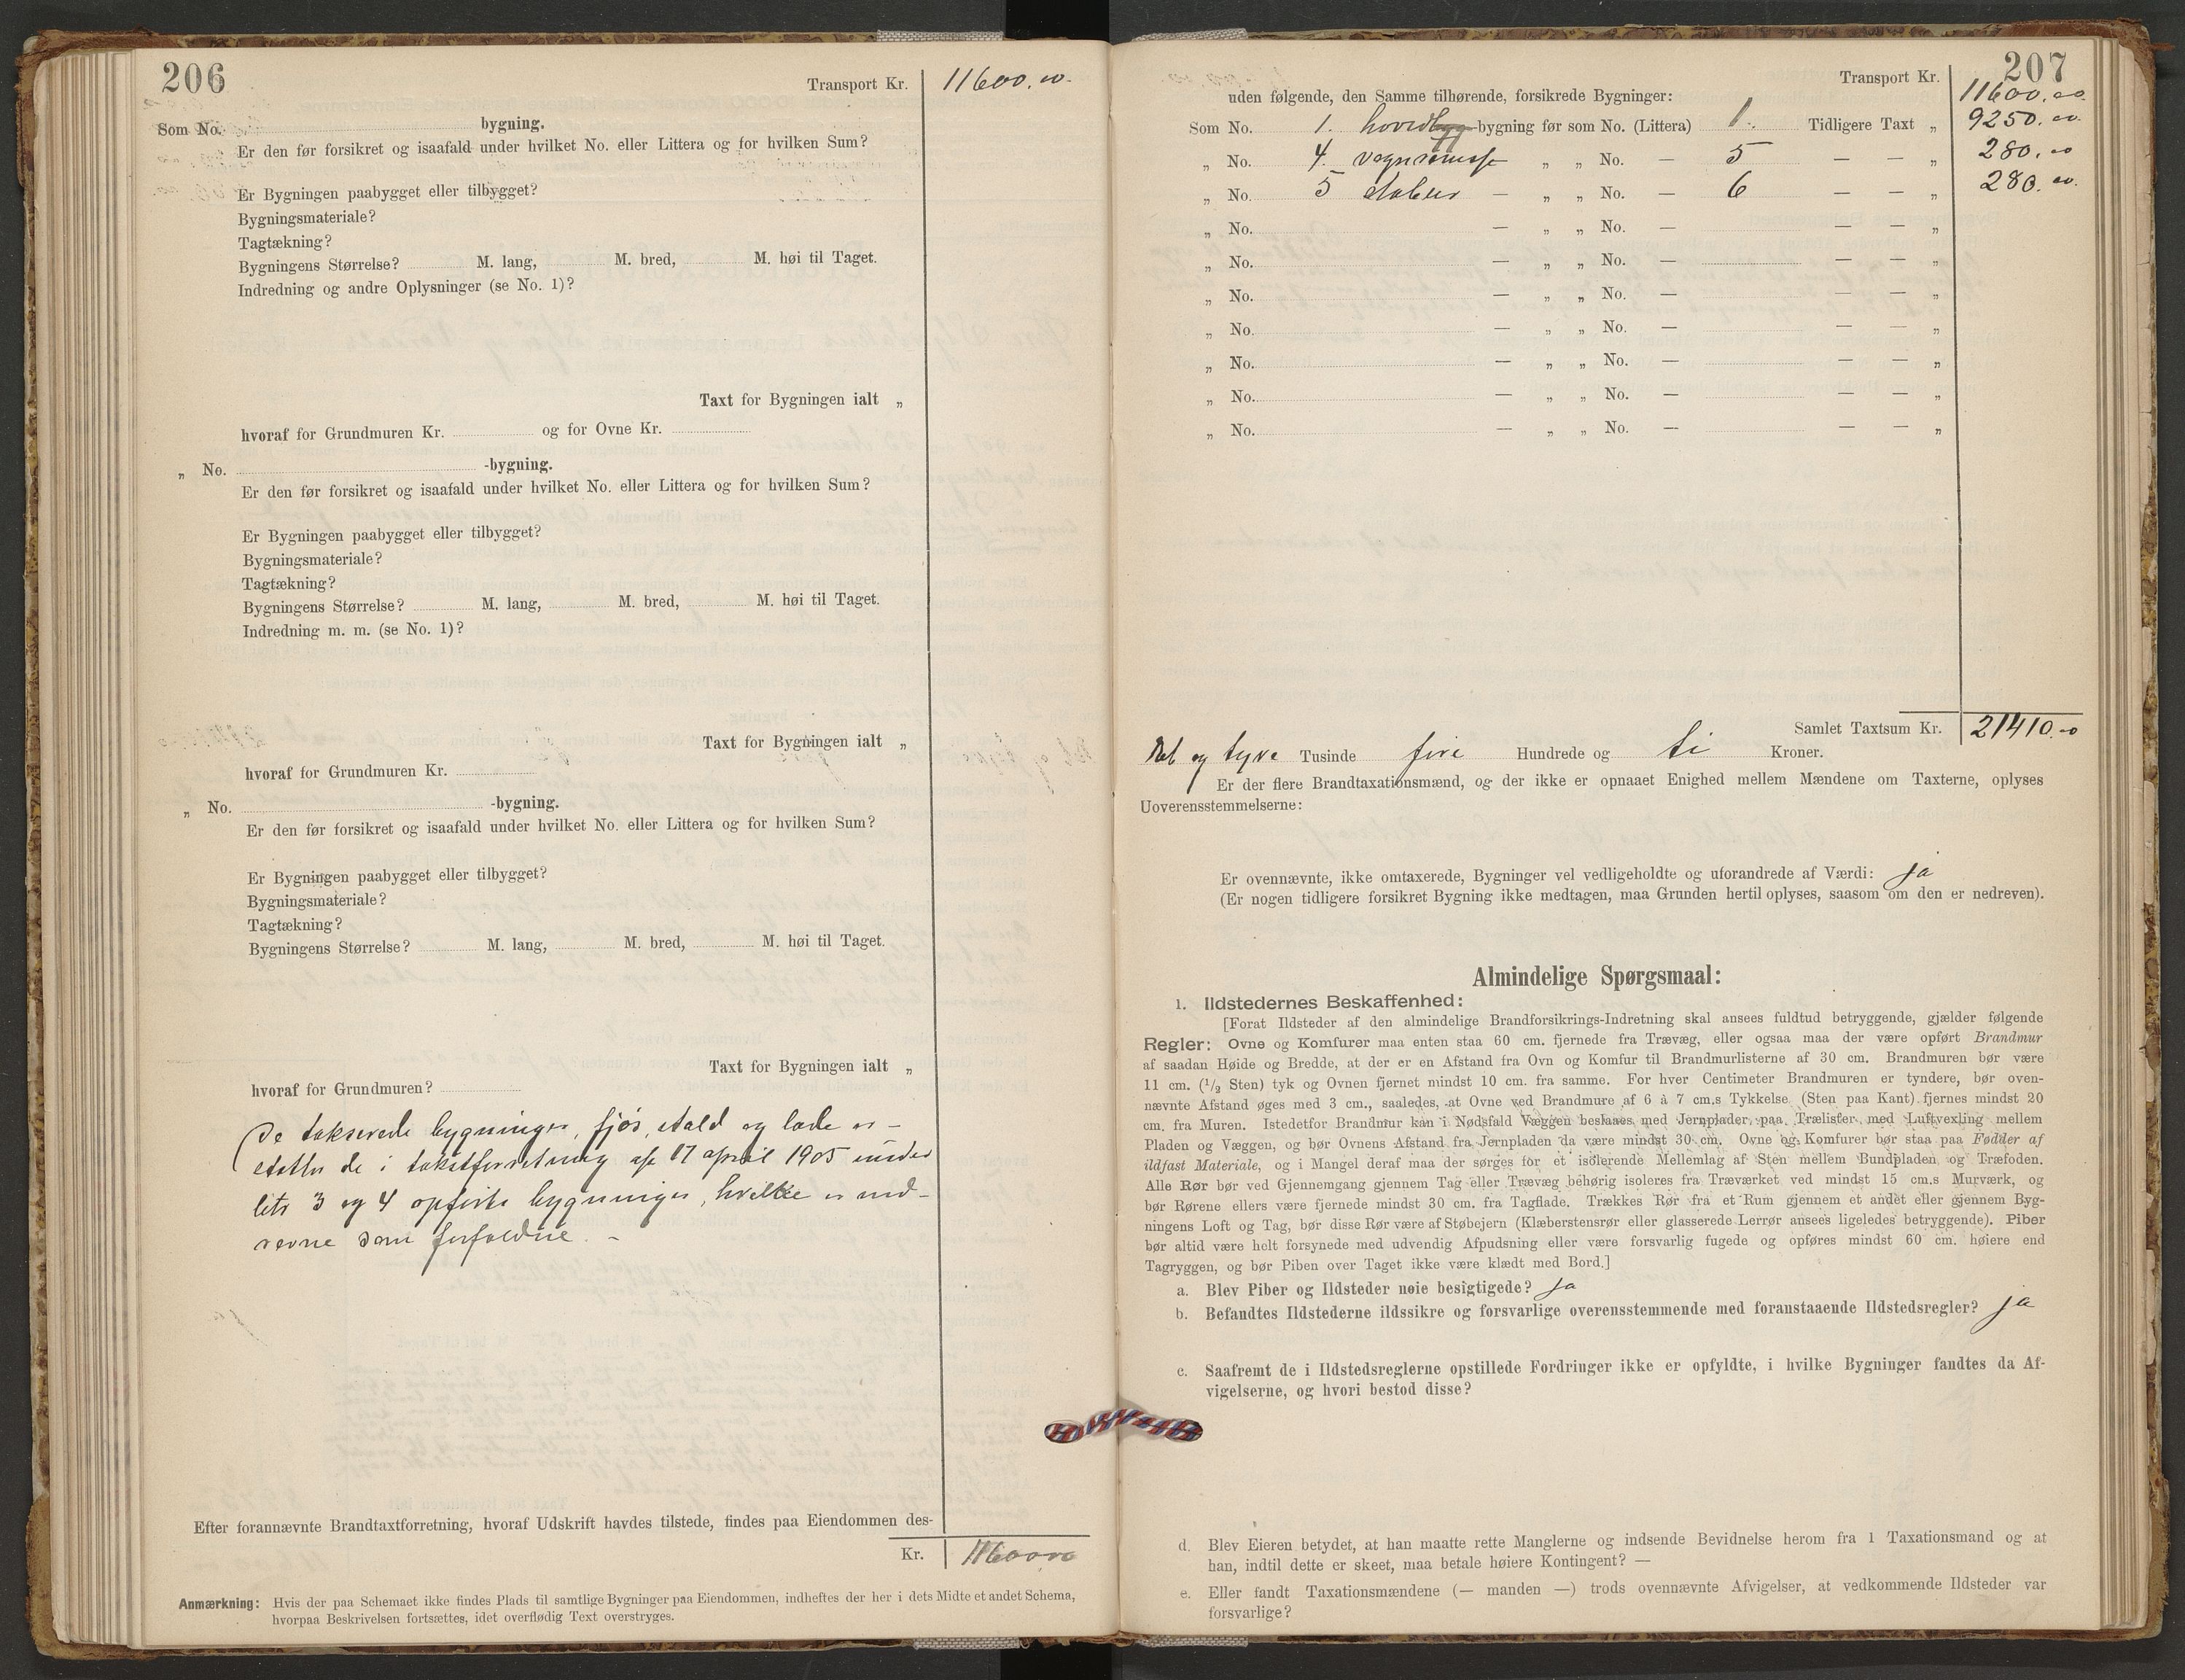 206
Transport Kr. 11600.00.
Som No. bygning.
Er den før forsikret og isaafald under hvilket No. eller Littera og for hvilken Sum?
Er Bygningen paabygget eller tilbygget?
Bygningsmateriale?
Tagtækning?
Bygningens Størrelse? M. lang, M. bred, M. høi til Taget.
Indredning og andre Oplysninger (se No. 1)?
Taxt for Bygningen ialt „
hvoraf for Grundmuren Kr. og for Ovne Kr.
„ No. -bygning.
Er den før forsikret og isaafald under hvilket No. eller Littera og for hvilken Sum?
Er Bygningen paabygget eller tilbygget?
Bygningsmateriale?
Tagtækning?
Bygningens Størrelse? M. lang, M. bred, M. høi til Taget.
Indredning m. m. (se No. 1)?
Taxt for Bygningen ialt „
hvoraf for Grundmuren Kr.
„ No. -bygning.
Er den før forsikret og isaafald under hvilket No. eller Littera og for hvilken Sum?
Er Bygningen paabygget eller tilbygget?
Bygningsmateriale?
Tagtækning?
Bygningens Størrelse? M. lang, M. bred, M. høi til Taget.
Taxt for Bygningen ialt „
hvoraf for Grundmuren?
De takserede bygninger, fjøs, stald og lade er-
statter de i takstforretning af 17 april 1905 under
litr 3 og 4 opførte bygninger, hvilke er ned-
revne som forfaldne. -
Efter forannævnte Brandtaxtforretning, hvoraf Udskrift havdes tilstede, findes paa Eiendommen des-
Kr. 11600 00
Anmærkning: Hvis der paa Schemaet ikke findes Plads til samtlige Bygninger paa Eiendommen, indheftes der her i dets Midte et andet Schema,
hvorpaa Beskrivelsen fortsættes, idet overflødig Text overstryges.
207
Transport Kr. 11600.00.
uden følgende, den Samme tilhørende, forsikrede Bygninger:
Som No. 1. hovedbyg-bygning før som No. (Littera) 1. Tidligere Taxt „ 9250.00.
„ No. 4. vognremisse „ „ No. — 5 — — „ 280.00
„ No. 5 stabur — „ „ No. — 6 — — „ 280.00.
„ No. — „ „ No. — — — „
„ No. — „ „ No. — — — „
„ No. — „ „ No. — — — „
„ No. — „ „ No. — — — „
„ No. — „ „ No. — — — „
„ No. — „ „ No. — — — „
„ No. — „ „ No. — — — „
Samlet Taxtsum Kr. 21410.00
Et og tyve Tusinde fire Hundrede og ti Kroner.
Er der flere Brandtaxationsmænd, og der ikke er opnaaet Enighed mellem Mændene om Taxterne, oplyses
Uoverensstemmelserne:
Er ovennævnte, ikke omtaxerede, Bygninger vel vedligeholdte og uforandrede af Værdi: ja
(Er nogen tidligere forsikret Bygning ikke medtagen, maa Grunden hertil oplyses, saasom om den er nedreven).
Almindelige Spørgsmaal:
1. Ildstedernes Beskaffenhed:
[Forat Ildsteder af den almindelige Brandforsikrings-Indretning skal ansees fuldtud betryggende, gjælder følgende
Regler: Ovne og Komfurer maa enten staa 60 cm. fjernede fra Trævæg, eller ogsaa maa der være opført Brandmur
af saadan Høide og Bredde, at der er en Afstand fra Ovn og Komfur til Brandmurlisterne af 30 cm. Brandmuren bør være
11 cm. (1/2 Sten) tyk og Ovnen fjernet mindst 10 cm. fra samme. For hver Centimeter Brandmuren er tyndere, bør oven-
nævnte Afstand øges med 3 cm., saaledes, at Ovne ved Brandmure af 6 à 7 cm.s Tykkelse (Sten paa Kant) fjernes mindst 20
cm. fra Muren. Istedetfor Brandmur kan i Nødsfald Væggen beslaaes med Jernplader paa Trælister med Luftvexling mellem
Pladen og Væggen, og bør Ovnens Afstand fra Jernpladen da være mindst 30 cm. Ovne og Komfurer bør staa paa Fødder af
ildfast Materiale, og i Mangel deraf maa der sørges for et isolerende Mellemlag af Sten mellem Bundpladen og Træfoden.
Alle Rør bør ved Gjennemgang gjennem Tag eller Trævæg behørig isoleres fra Træværket ved mindst 15 cm.s Murværk, og
bør Rørene ellers være fjernede mindst 30 cm. fra Tagflade. Trækkes Rør fra et Rum gjennem et andet eller gjennem Byg-
ningens Loft og Tag, bør disse Rør være af Støbejern (Klæberstensrør eller glasserede Lerrør ansees ligeledes betryggende). Piber
bør altid være helt forsynede med udvendig Afpudsning eller være forsvarlig fugede og opføres mindst 60 cm. høiere end
Tagryggen, og bør Piben over Taget ikke være klædt med Bord.]
a. Blev Piber og Ildsteder nøie besigtigede? ja
b. Befandtes Ildstederne ildssikre og forsvarlige overensstemmende med foranstaaende Ildstedsregler? ja
c. Saafremt de i Ildstedsreglerne opstillede Fordringer ikke er opfyldte, i hvilke Bygninger fandtes da Af-
vigelserne, og hvori bestod disse?
d. Blev Eieren betydet, at han maatte rette Manglerne og indsende Bevidnelse herom fra 1 Taxationsmand og at
han, indtil dette er skeet, maa betale høiere Kontingent? —
e. Eller fandt Taxationsmændene (— manden —) trods ovennævnte Afvigelser, at vedkommende Ildsteder var
forsvarlige?